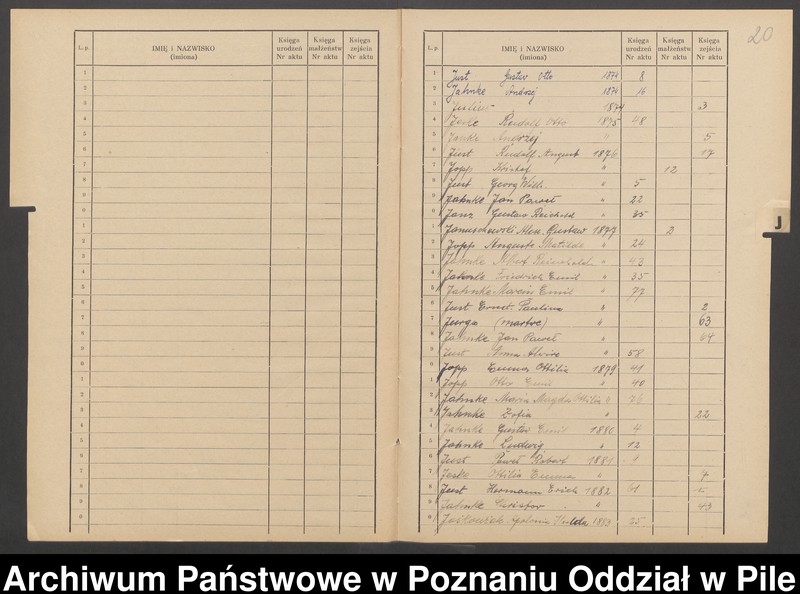 L. p. IMIĘ i NAZWISKO (imiona) Księga urodzeń Nr aktu Księga małżeństw Nr aktu Księga zejścia Nr aktu
20
L. p. IMIĘ i NAZWISKO (imiona) Księga urodzeń Nr aktu Księga małżeństw Nr aktu Księga zejścia Nr aktu
1 Just Gustav Otto 1874 8
2 Jahnke Andrzej 1874 16
3 1874 3
4 Jeske Rudolf Otto 1875 48
5 Janke Andrzej " 5
6 Just Rudolf August 1876 17
7 Jopp " 12
8 Just Georg Wilh. " 5
9 Jahnke Jan Paweł " 22
0 Janz Gustaw Reinhold " 35
1 Januschewski Alex. Gustaw 1877 2
2 Jopp Auguste Matilde " 24
3 Jahnke Albert Reinhold " 43
4 Jahnke Friedrich Emil " 55
5 Jahnke Marcin Emil " 77
6 Just Ernst. Paulina " 2
7 Junga (martwe) " 63
8 Jahnke Jan Paweł " 64
9 Just Anna " 58
0 Jopp Emma Ottilie 1879 41
1 Jopp Otto Emil " 40
2 Jahnke Maria Magda Ottilie " 76
3 Jahnke Zofia " 22
4 Jahnke Gustav Emil 1880 4
5 Jahnke Ludwig " 12
6 Just Paweł Robert 1881
7 Jeske Ottilia Emma "
8 Just Hermann Erich 1882
9 Jahnke " 43
0 Apolonia Hulda 1883 25
J
Archiwum Państwowe w Poznaniu Oddział w Pile